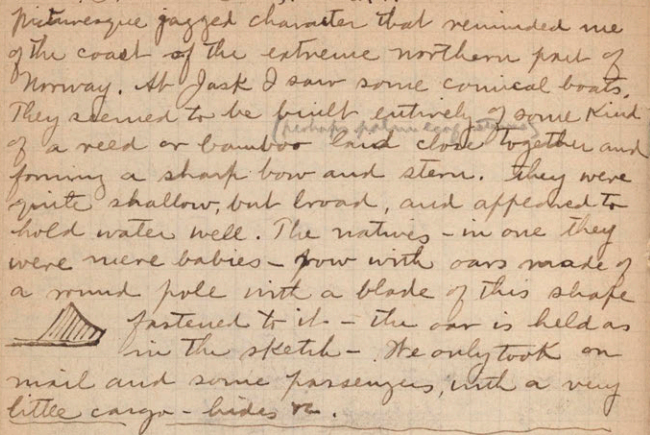 picturesque jagged character that reminded me
of the coast of the extreme northern part of
Norway. At Jask I saw some comical boats.
They seemed to be built entirely of some kind
(perhaps palm leaf stems)
of a reed or bamboo laid close together and
forming a sharp bow and stern. They were
quite shallow, but broad, and appeared to
hold water well. The natives - in one they
were mere babies - row with oars made of
a round pole with a blade of this shape
fastened to it - the oar is held as
in the sketch - We only took on
mail and some passengers, with a very
little cargo - hides &c.